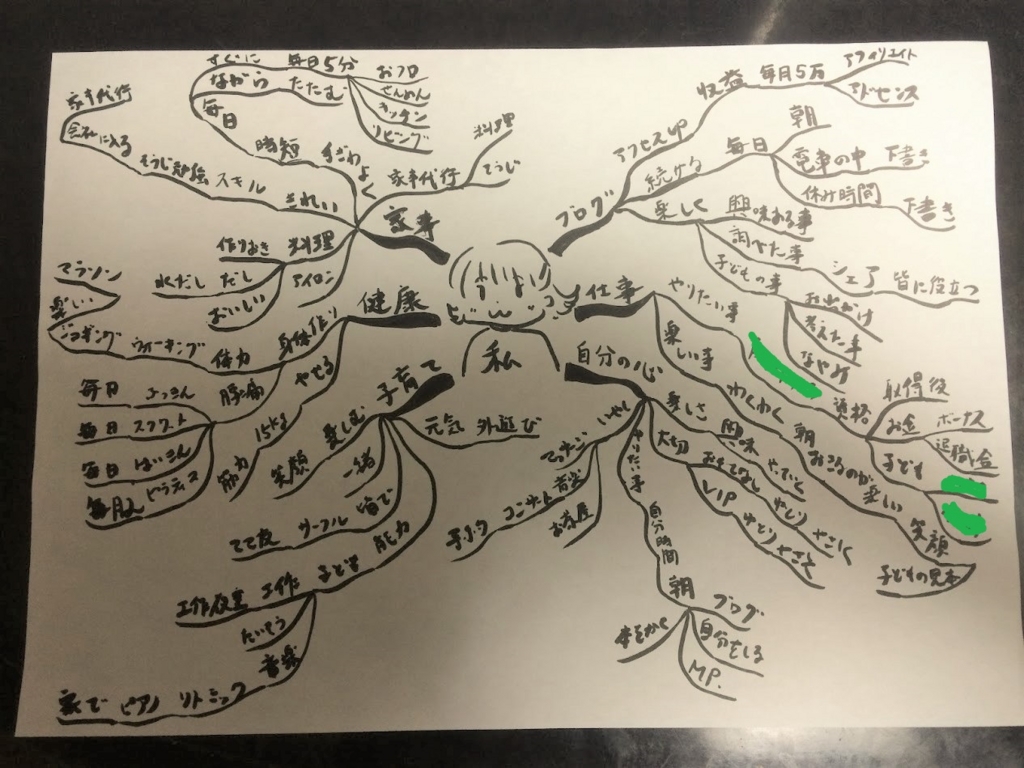 私
家事
きれい
スキル
そうじ勉強
会社に入る
家事代行
時短
毎日
ながら
たたむ
すぐに
毎日5分
おフロ
せんめん
キッチン
リビング
手ぎわよく
家事代行
料理
そうじ
料理
作りおき
だし
水だし
おいしい
アイロン
健康
身体作り
体力
ウォーキング
ジョギング
楽しい
マラソン
腰痛
毎日
ふっきん
毎日
スクワット
毎日
はいきん
ピラティス
やせる
15kg
筋力
子育て
楽しむ
笑顔
一緒
皆で
サークル
能力
子ども
工作
工作教室
たいそう
音楽
リトミック
ピアノ
家で
元気
外遊び
ブログ
アクセスup
収益
毎月5万
アフィリエイト
アドセンス
続ける
毎日
朝
電車の中
下書き
休み時間
下書き
楽しく
興味ある事
調べた事
シェア
皆に役立つ
子どもの事
お出かけ
考えた事
なやみ
仕事
やりたい事
資格
取得後
お金
ボーナス
退職金
子ども
楽しい事
わくわく
朝
おきるのが楽しい
笑顔
子どもの見本
自分の心
楽しさ
興味
大切
おもてなし
VIP
やさしく
やりたい事
自分時間
朝
ブログ
自分をしる
M.P.
いやし
コンサート
音楽
お茶屋